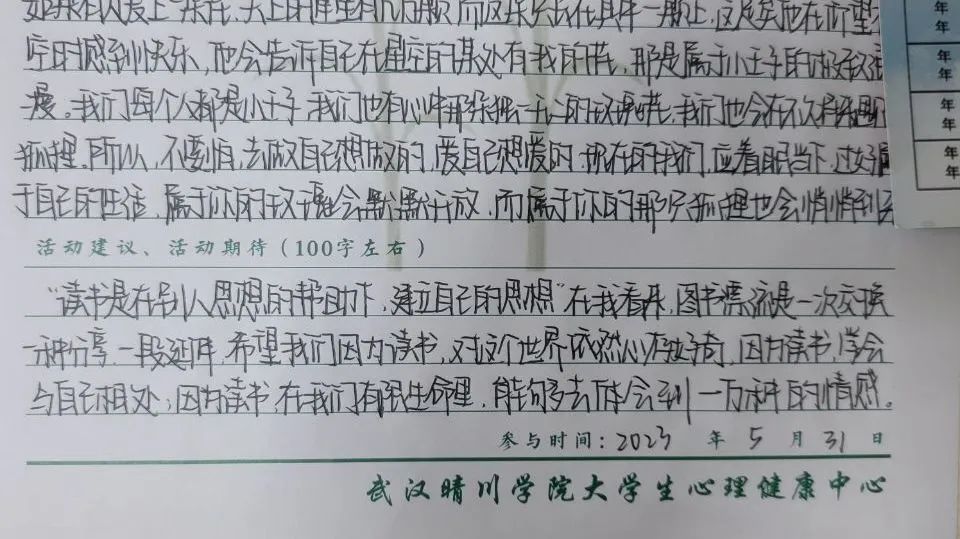 如果有人爱上一朵花,天上的星星有几百万颗而这朵长在其中一颗上,这足矣他在仰望
空时感到快乐,他会告诉自己在星空的某处有我的花,那是属于小王子的极致浪
漫。我们每个人都是小王子,我们也有心中那朵独一无二的玫瑰花,我们也会在不久后遇
狐狸,所以,不要怕,去做自己想做的,爱自己想爱的,现在的我们,应着眼当下,过好属
于自己的生活,属于你的玫瑰会默默开放,而属于你的那只狐狸也会悄悄到
活动建议、活动期待(100字左右)
“读书是在别人思想的帮助下,建立自己的思想”在我看来,图书漂流是一次交换
一种分享,一段延伸,希望我们因为读书,对这个世界依然心存好奇,因为读书,学会
与自己相处,因为读书,在我们有限生命里,能够多去体会到一万种的情感。
参与时间:2023年5月31日
武汉晴川学院大学生心理健康中心
年
年
年
年
年
年
年
年